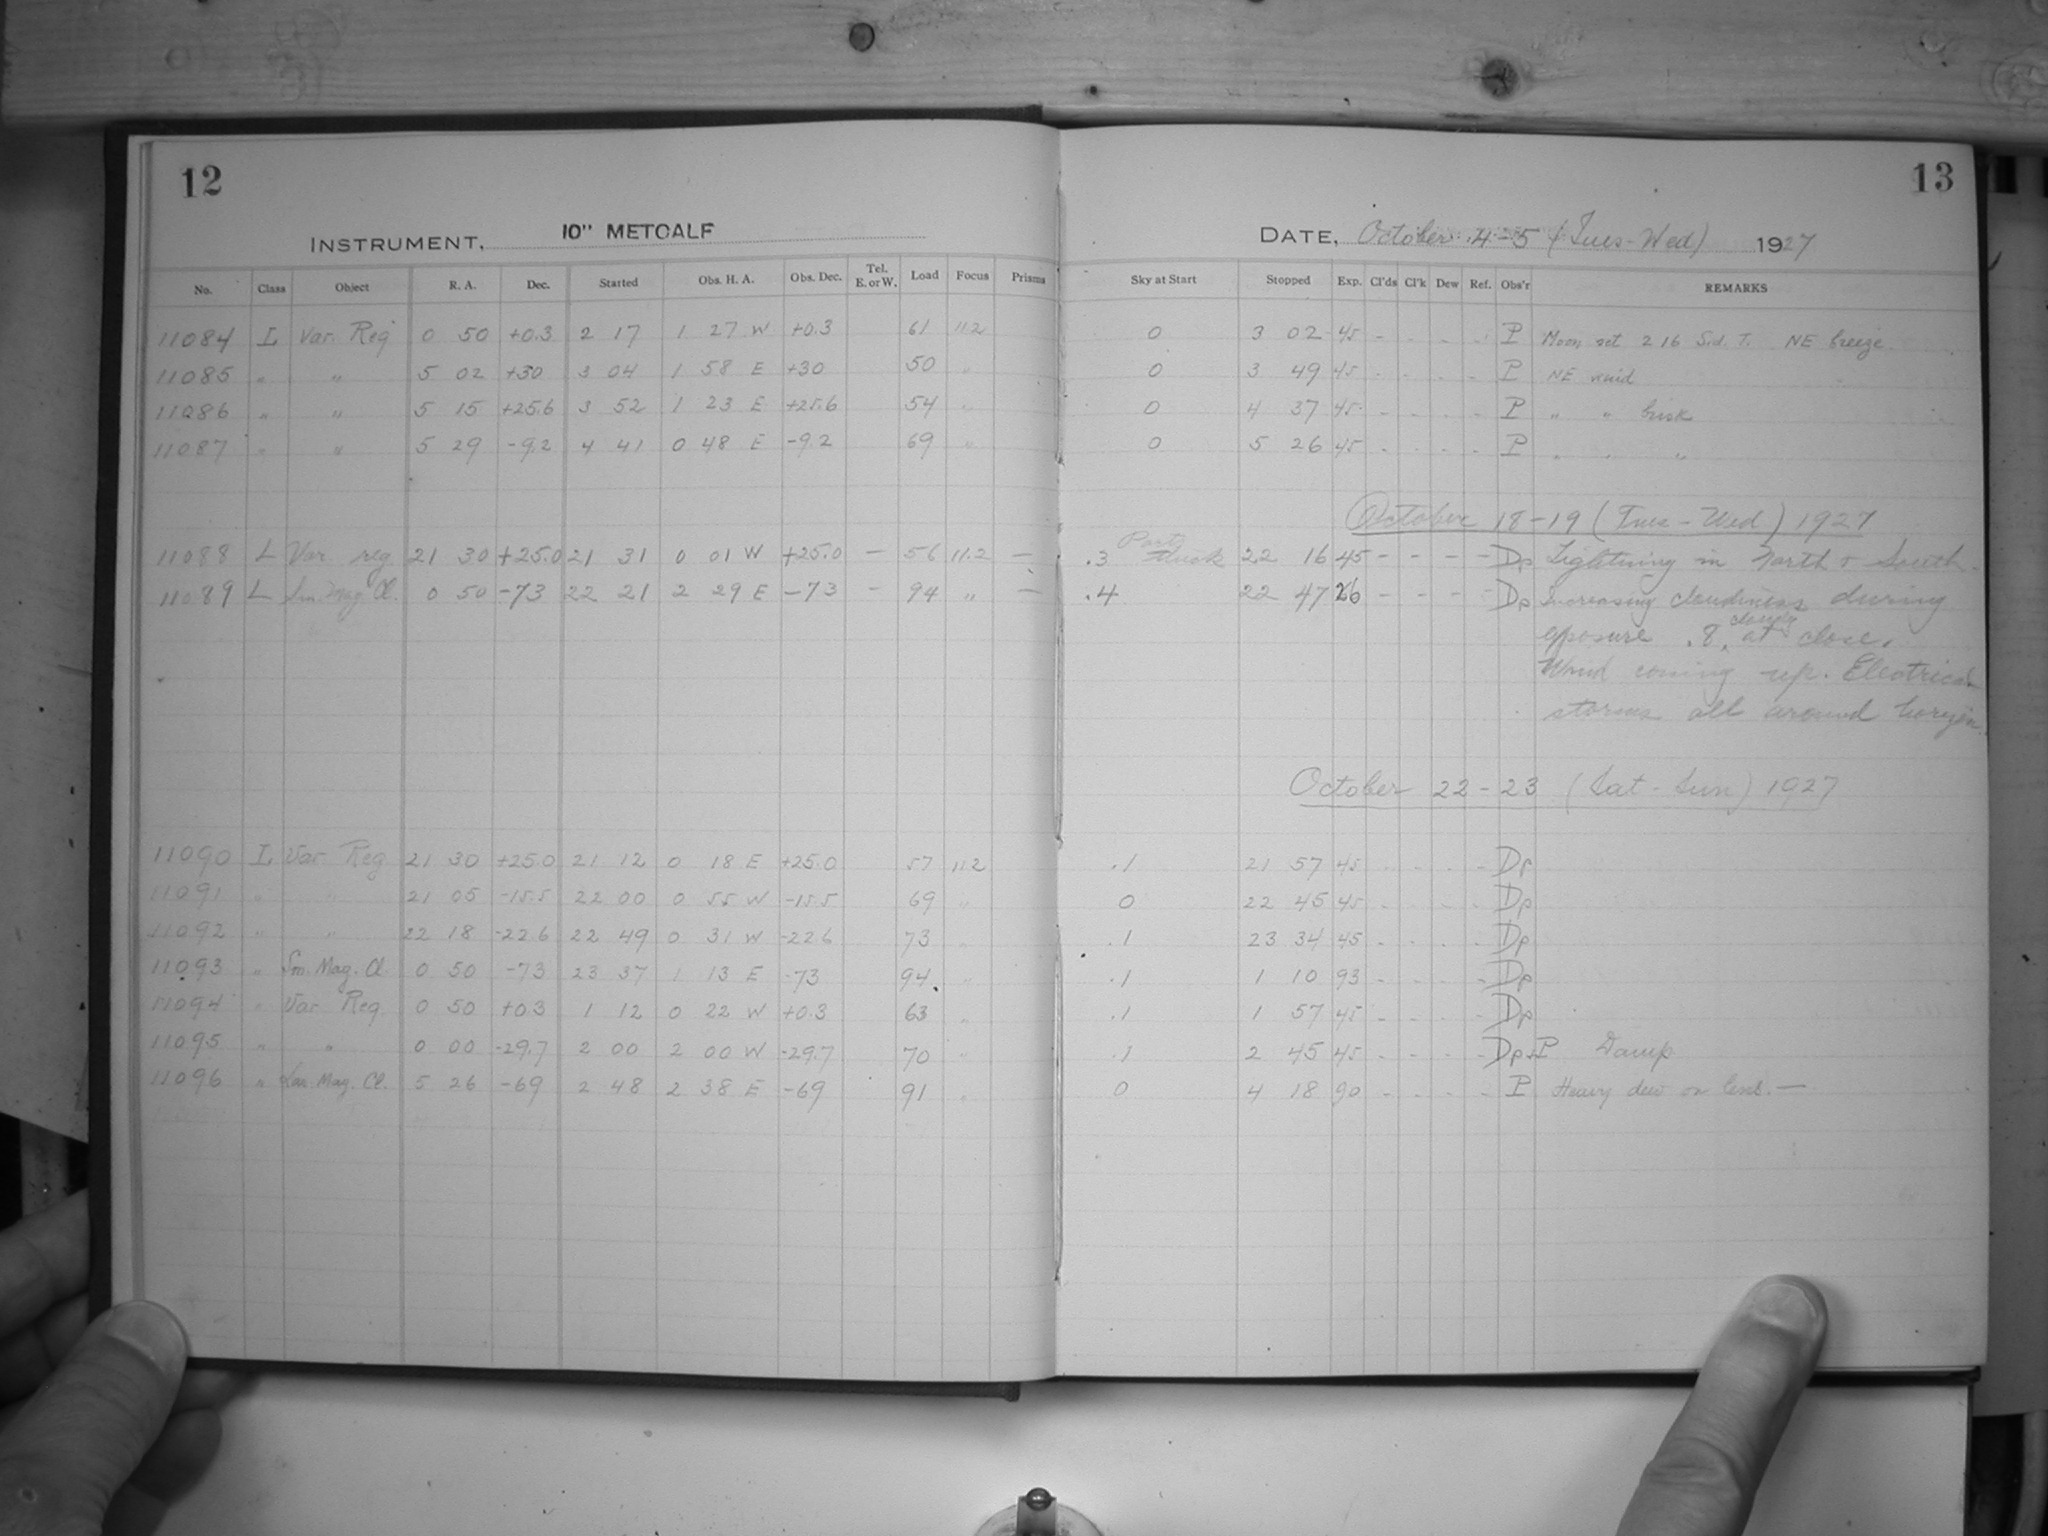 12
13
INSTRUMENT, 10" METCALF
DATE, October 4-5 (Tues-Wed) 1927
No. Class Object R. A. Dec. Started Obs. H. A. Obs. Dec. Tel. E. or W. Load Focus Prisms Sky at Start Stopped Exp. Cl'ds Cl'k Dew Ref. Obs'r REMARKS
11084 L Var. Reg 0 50 +0.3 2 17 1 27 W +0.3 61 11.2 0 3 02 45 - - - - P Moon set 2 16 Sid. T. NE breeze.
11085 " " 5 02 +30 3 04 1 58 E +30 50 " 0 3 49 45 - - - - P NE wind
11086 " " 5 15 +25.6 3 52 1 23 E +25.6 54 " 0 4 37 45 - - - - P " " brisk
11087 " " 5 29 -9.2 4 41 0 48 E -9.2 69 " 0 5 26 45 - - - - P " " "
October 18-19 (Tues-Wed) 1927
11088 L Var. reg 21 30 +25.0 21 31 0 01 W +25.0 — 56 11.2 — .3 Partly thick 22 16 45 - - - - Dp Lightning in North & South.
11089 L Sm. Mag. Cl. 0 50 -73 22 21 2 29 E -73 - 94 " — .4 22 47 26 - - - - Dp Increasing cloudiness during
exposure .8, cloudy at close.
Wind coming up. Electrical
storms all around horizon.
October 22-23 (Sat-Sun) 1927
11090 L Var Reg 21 30 +25.0 21 12 0 18 E +25.0 57 11.2 .1 21 57 45 - - - - Dp
11091 " " 21 05 -15.5 22 00 0 55 W -15.5 69 " 0 22 45 45 - - - - Dp
11092 " " 22 18 -22.6 22 49 0 31 W -22.6 73 " .1 23 34 45 - - - - Dp
11093 " Sm. Mag. Cl. 0 50 -73 23 37 1 13 E -73 94 " .1 1 10 93 - - - - Dp
11094 " Var Reg 0 50 +0.3 1 12 0 22 W +0.3 63 " .1 1 57 45 - - - - Dp
11095 " " 0 00 -29.7 2 00 2 00 W -29.7 70 " .1 2 45 45 - - - - Dp+P Damp
11096 " Lar. Mag. Cl. 5 26 -69 2 48 2 38 E -69 91 " 0 4 18 90 - - - - P Heavy dew on lens. —